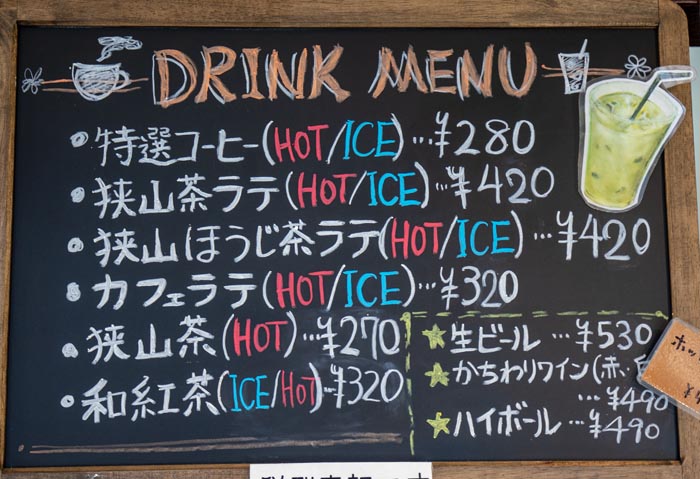 DRINK MENU
・特選コーヒー(HOT/ICE)…¥280
・狭山茶ラテ(HOT/ICE)…¥420
・狭山ほうじ茶ラテ(HOT/ICE)…¥420
・カフェラテ(HOT/ICE)…¥320
・狭山茶(HOT)…¥270
・和紅茶(ICE/HOT)…¥320
★生ビール…¥530
★かちわりワイン(赤・白
…¥490
★ハイボール…¥490
ホッ